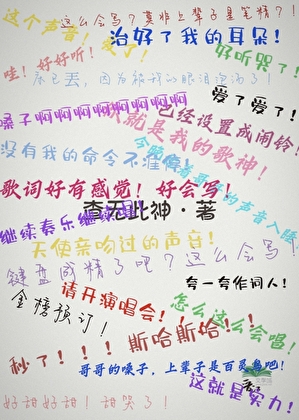 这个声音！爱了！
这么会写？莫非上辈子是笔精？！
治好了我的耳朵！
哇！好好听！
好听哭了！
床已丢，因为被我的眼泪泡泻了！
爱了爱了！
嗓子啊啊啊啊啊啊啊啊啊
已经设置成闹铃！
你就是我的歌神！
没有我的命令不准停！
今晚伴着哥哥的声音入睡
歌词好有感觉！好会写！
查无此神·著
继续奏乐继续
天使亲吻过的声音！
键盘成精了吧？这么会写！
夸一夸作词人！
金榜预订！
请开演唱会！！！
怎么这么会唱！
秒了！！！
斯哈斯哈！！
哥哥的嗓子，上辈子是百灵鸟吧！
这就是实力！
好甜好甜！甜哭了！